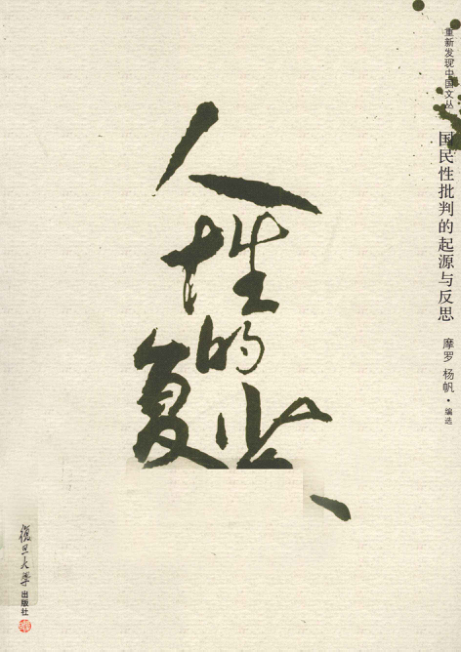 重新发现中国文丛
国民性批判的起源与反思
摩罗 杨帆·编选
人性的复
復旦大学出版社